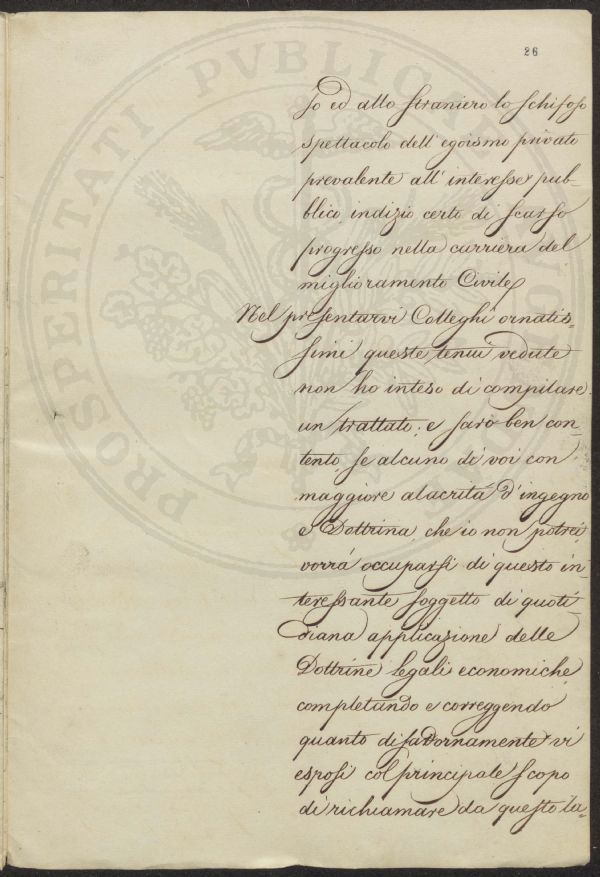 26
so ed allo straniero lo schifoso
spettacolo dell'egoismo privato
prevalente all'interesse pub-
blico, indizio certo di scarso
progresso nella carriera del
miglioramento Civile,
Nel presentarvi Colleghi ornatis-
simi queste tenui vedute
non ho inteso di compilare
un trattato; e sarò ben con-
tento, se alcuno di voi con
maggiore alacrità d'ingegno
e Dottrina, che io non potrei,
vorrà occuparsi di questo in-
teressante soggetto di quoti-
diana applicazione delle
Dottrine legali economiche,
completando e correggendo
quanto disadornamente vi
esposi col principale scopo
di richiamare da questo la-
PROSPERITATI PVBLICAE